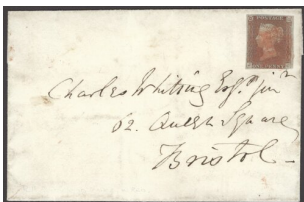 POSTAGE
Charles Whiting Esqr. Junr
62. Queen Square
Bristol